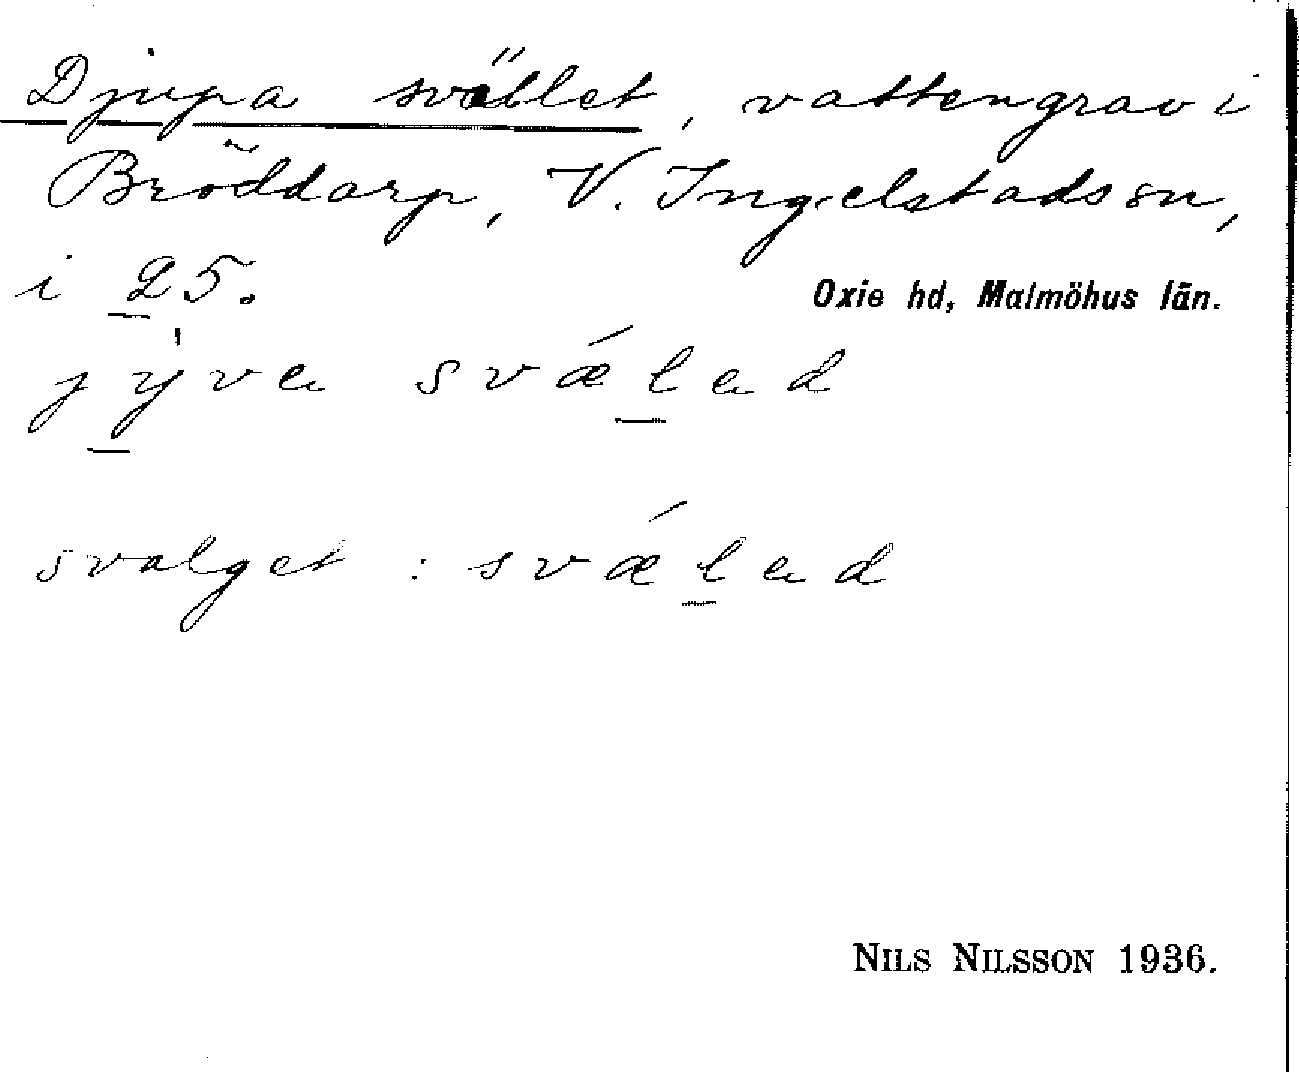 Djupa svället, vattengrav i
Bröddarp, V. Ingelstads sn,
i 25.
Oxie hd, Malmöhus län.
jyva svǽlad
svalget : svǽlad
NILS NILSSON 1936.